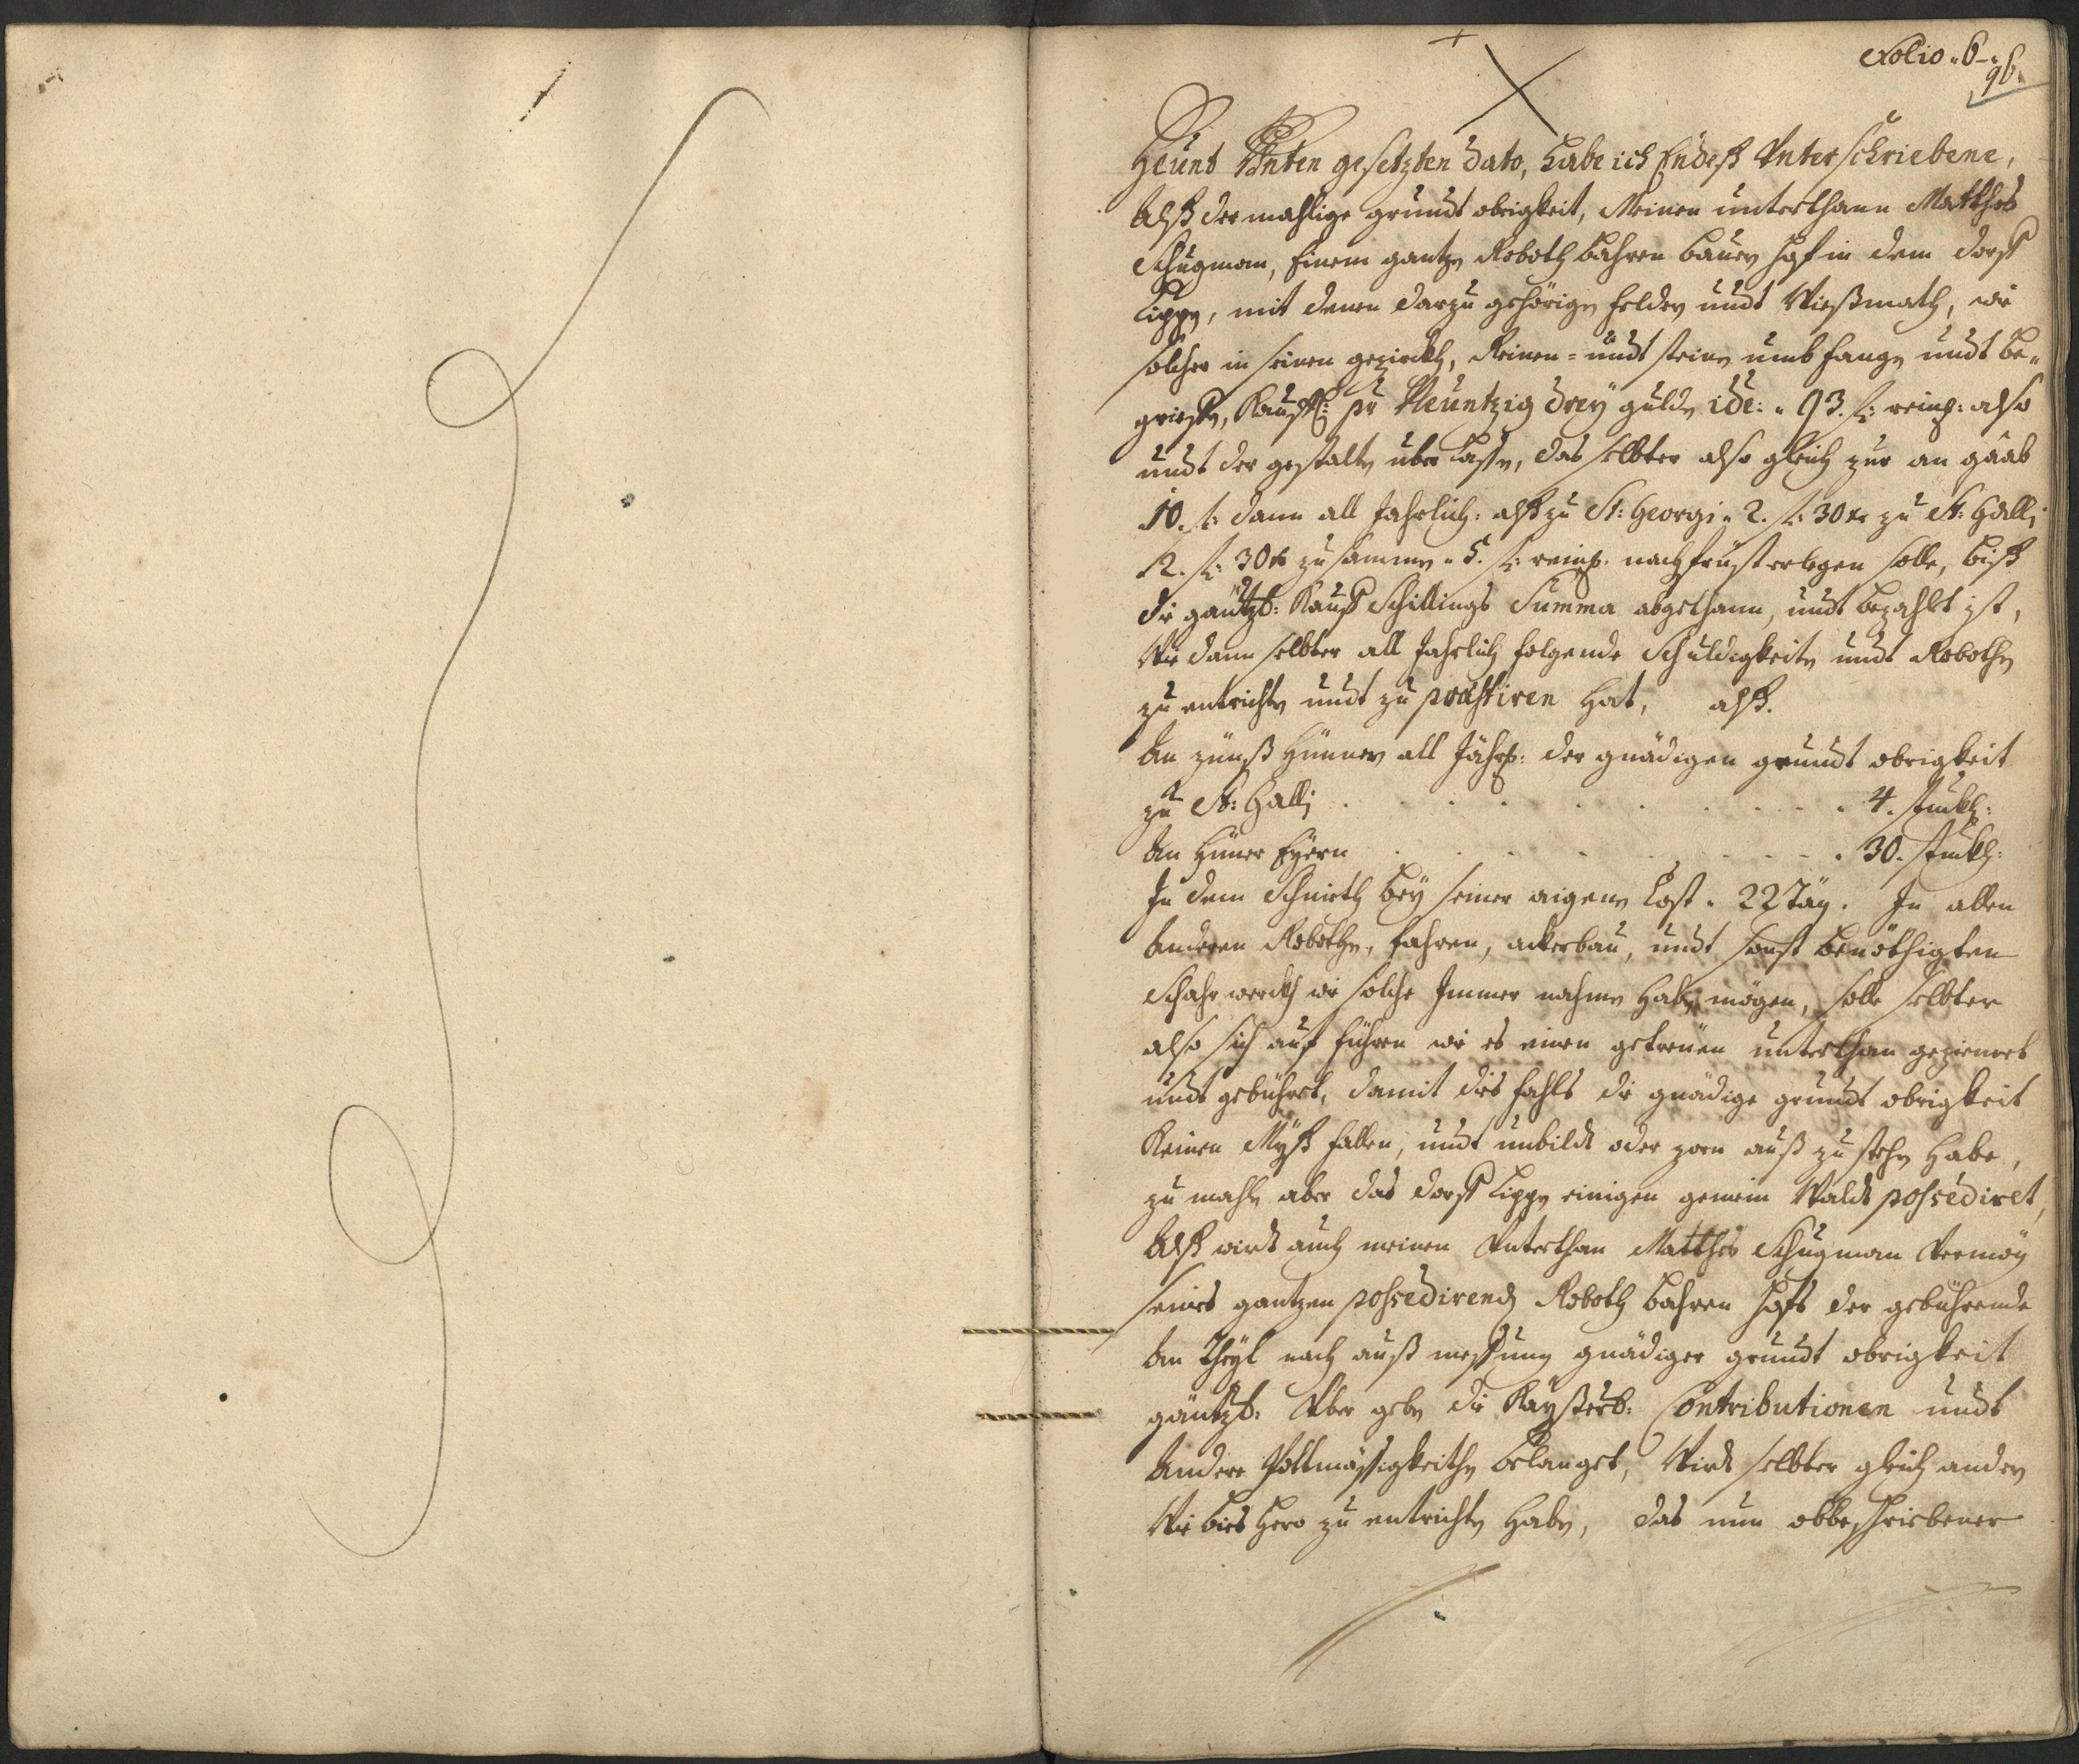 Folio. 6.
96.
Heunt Unten gesetzten dato, habe ich Endeß Unterschriebene,
Alß dermahlige grundt obrigkeit, Meinen unterthann Matthes
Schugman, Einem gantzen Roboth bahren bauern hof in dem dorff
Lippen, mit denen darzu gehörigen feldern undt Wießmath, wie
solcher in seinen gezirckh, Reinen= undt steinen umbfangen undt be„
grieffen, Kauffl: pr Neuntzig drey gulden ide: „ 93. fl: reinl: also
undt der gestalten uberlassen, das selbter also gleich zur an gaab
10. fl: dann all Jahrlich: alß zu St: Georgi „ 2. fl: 30 xr zu St: Galli
2. fl: 30 xr zusammen „ 5. fl: reinl: nachfrüst erlegen solle, biß
die gäntzl: Kauff Schillings Summa abgethann, undt bezahlt ist,
Wie dann selbter all Jahrlich folgende Schuldigkeiten undt Robothen
zu entrichten undt zu præstiren hat, alß.
An zünß hünner all Jährl: der gnädigen grundt obrigkeit
zu St: Galli . . . . . . . . . . 4. stuckh:
An hüner Eyern . . . . . . . . . 30. stuckh:
In dem Schnieth bey seiner aigenen Cost „ 22 Täg. In allen
Anderen Robothen, fahren, ackerbau, undt sonst benöthigten
Schahr werckh wie solche Immer nahmen haben mögen, solle selbter
also sich auf führen wie es einen getreuen unterthan geziemet
undt gebühret, damit dies fahls die gnädige grundt obrigkeit
Keinen Myß fallen, undt unbildt oder zorn auß zu stehen habe,
zu mahlen aber das dorff Lippen einigen gemein Waldt possediret,
Alß wirdt auch meinen Unterthan Matthes Schugman Vermög
seines gantzen possedirenden Roboth bahren hofs der gebührende
An theyl nach auß messung gnädiger grundt obrigkeit
gäntzl: Uber geben die Kayßerl: Contributionen undt
Andere Pottmässigkeithen belanget, Wirdt selbter gleich andern
Wie bies hero zu entrichten haben, das nun obbeschriebener